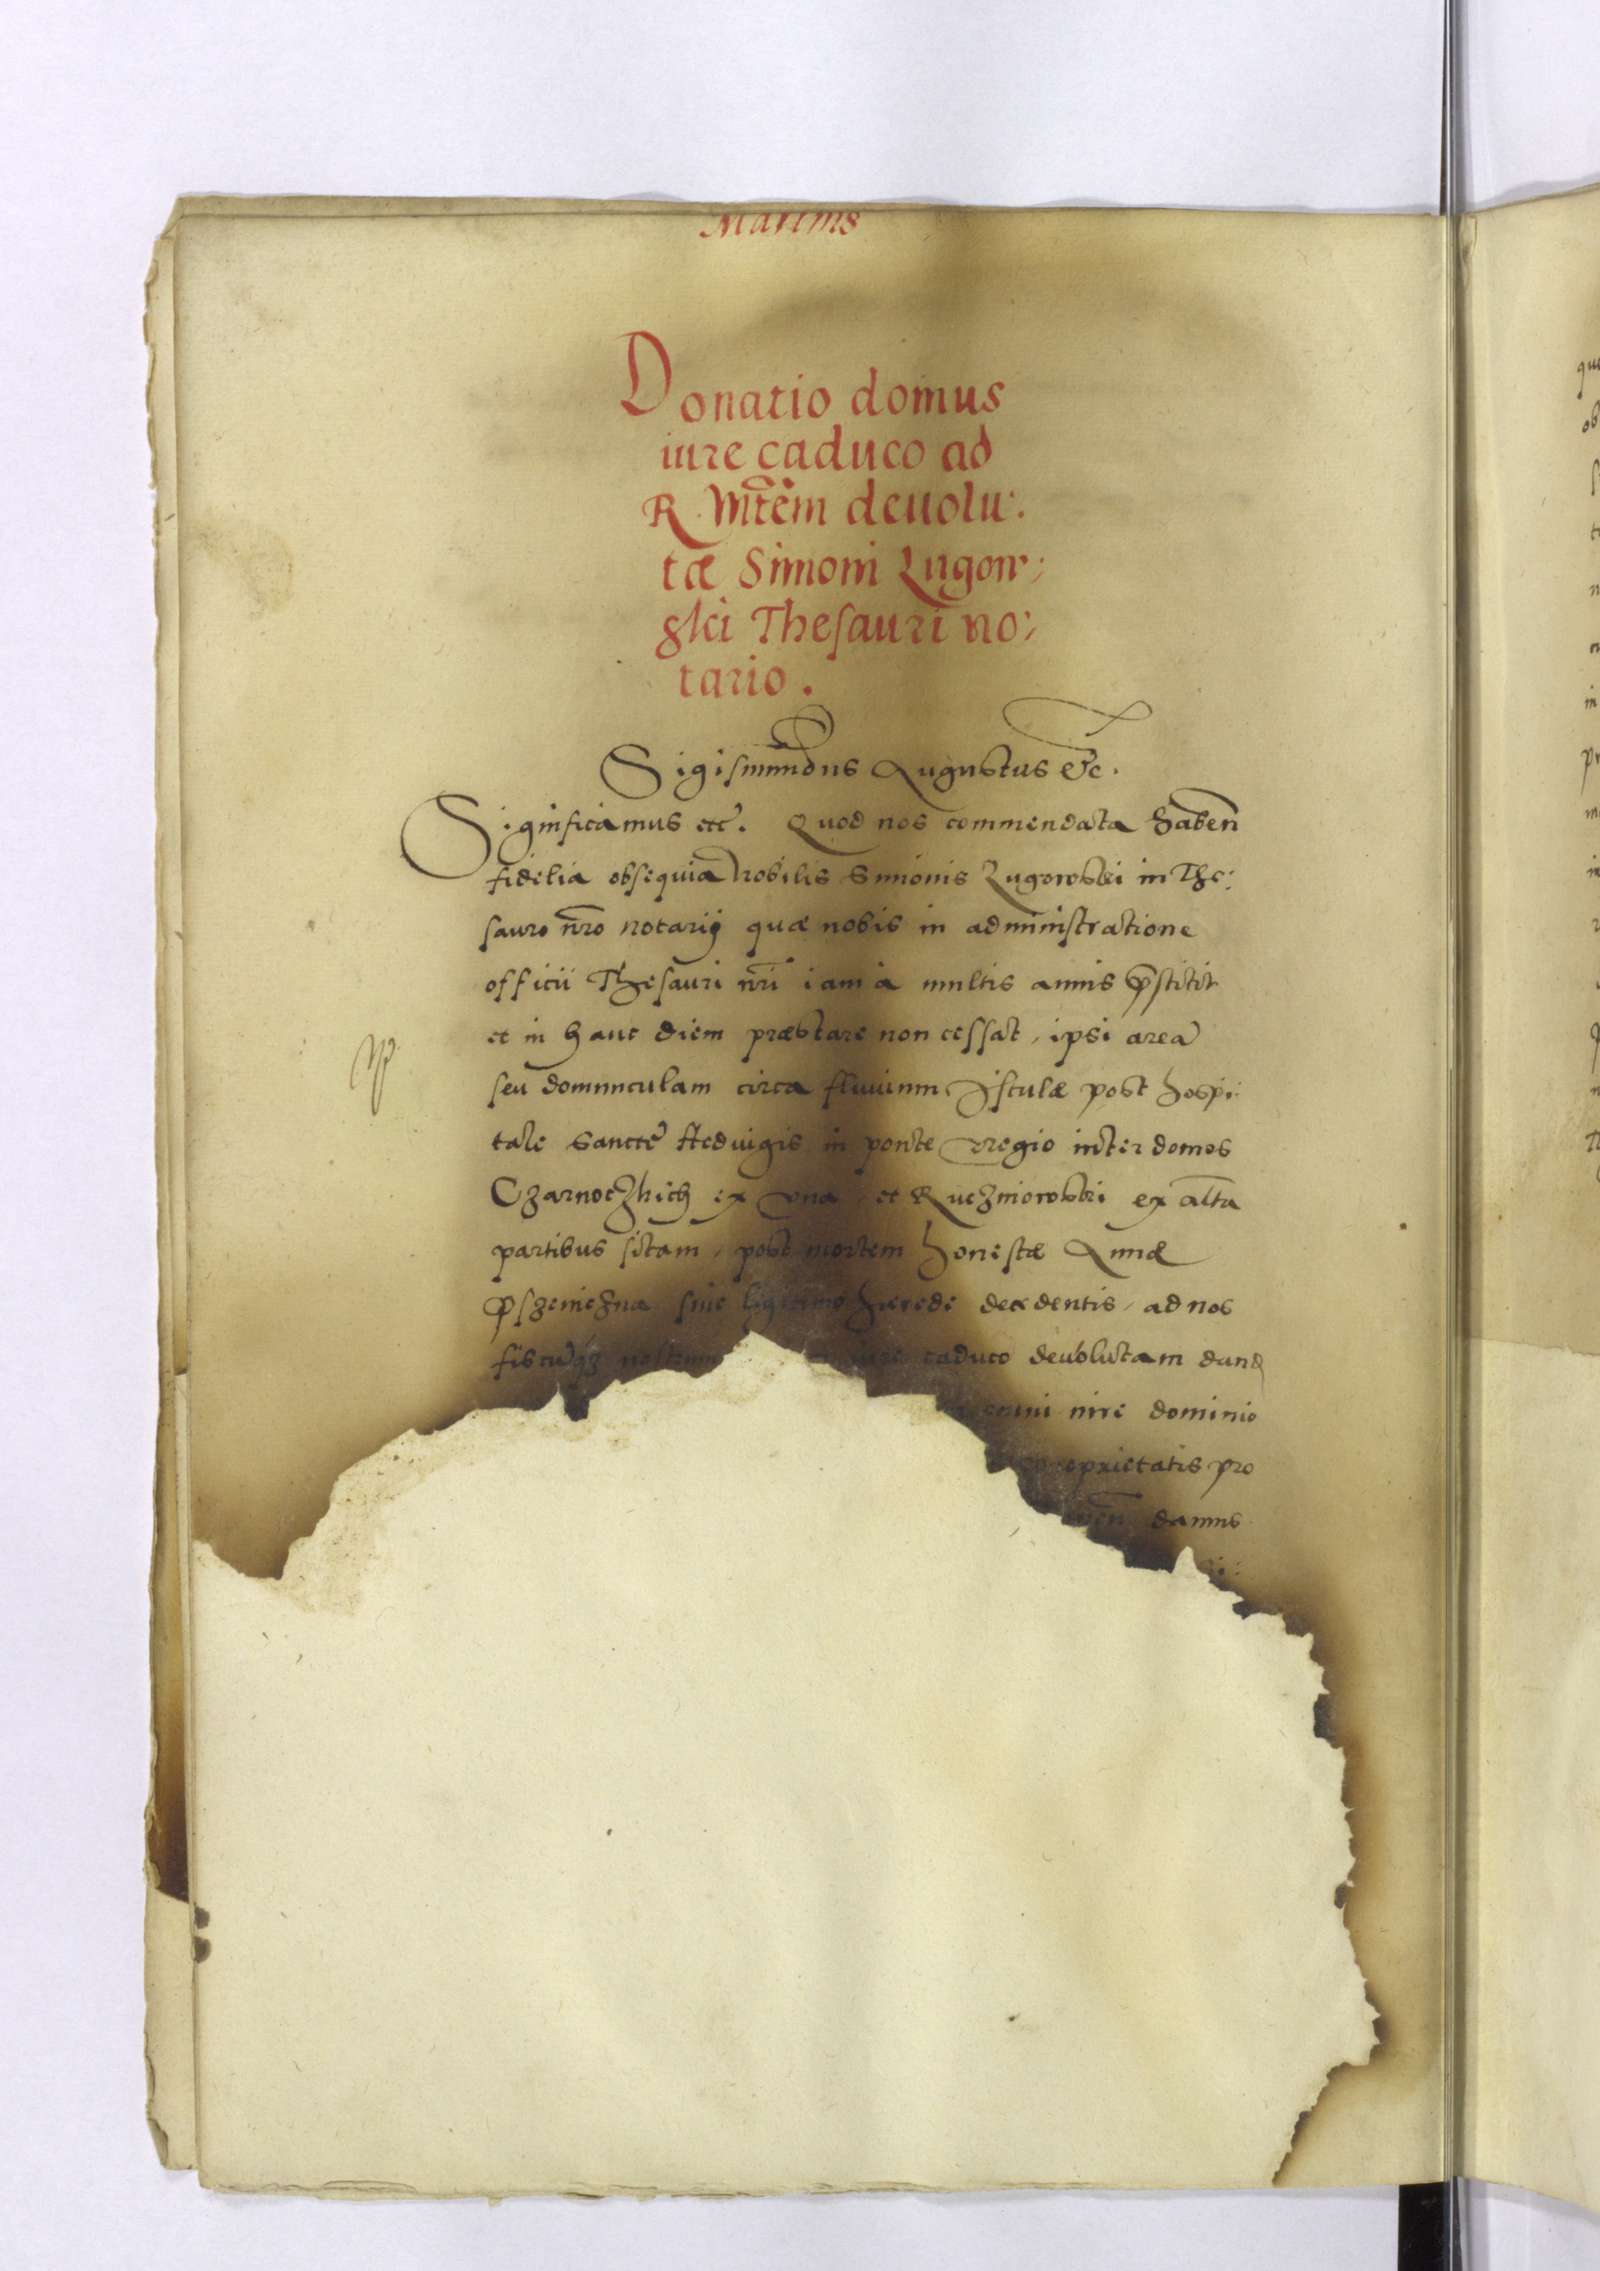 Martins
Donatio domus
iure caduco ad
R. Mtem deuolu:
tæ Simoni Lugow:
ski Thesauri no:
tario.
Sigismundus Augustus etc.
Significamus etc. Quod nos commendata haben
fidelia obsequia nobilis Simonis Lugowski in The:
sauro nro notarij quæ nobis in administratione
officii Thesauri nri iam a multis annis pstitit
et in hanc diem præstare non cessat, ipsi area
seu domunculam circa fluuium Istulæ post hospi:
tale Sancte Heduigis in ponte regio inter domos
Czarnoczkich ex una, et Kuczmiorowski ex alta
partibus sitam, post mortem honestæ Annæ
Pszeniczna sine ligitimo hærede decedentis, ad nos
fiscuqz nostrum iure caduco deuolutam dand
omni iure dominio
proprietatis pro
damus